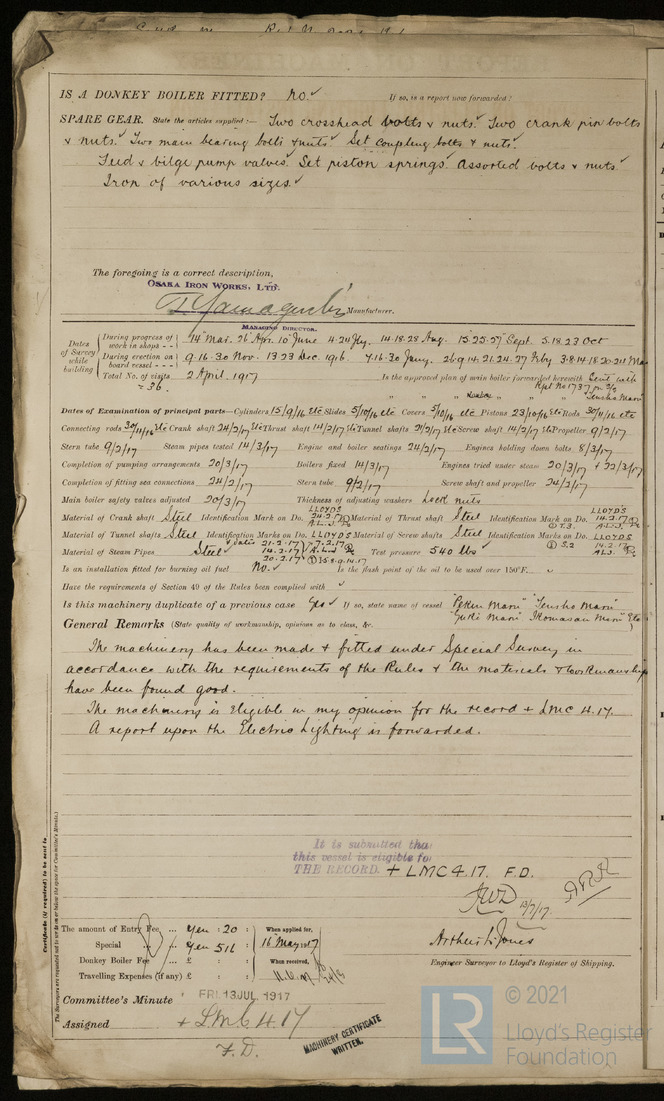 IS A DONKEY BOILER FITTED? No. ✓ If so, is a report now forwarded?
SPARE GEAR. State the articles supplied:— Two crosshead bolts & nuts. Two crank pin bolts
& nuts. ✓ Two main bearing bolts & nuts. ✓ Set coupling bolts & nuts. ✓
Feed & bilge pump valves. Set piston springs. Assorted bolts & nuts ✓
Iron of various sizes. ✓
The foregoing is a correct description,
OSAKA IRON WORKS, LTD.
Manufacturer.
MANAGING DIRECTOR.
Dates of Survey while building
During progress of work in shops - - 14 Mar. 26 Apr. 10 June 4. 24 Jly. 14.18.28 Aug. 15.25.27 Sept. 5.18.23 Oct
During erection on board vessel - - - 9.16.30 Nov. 13 23 Dec. 1916. 7.16.30 Jany. 2.6.9.14.21.24.27 Feby 3.8.14.18.20.24 Mar
Total No. of visits 2 April 1917 Is the approved plan of main boiler forwarded herewith Sent with
= 36. Rpt No 1737 on S/S
" " " donkey " " " Tensho Maru
Dates of Examination of principal parts—Cylinders 15/9/16 etc Slides 5/10/16 etc Covers 5/10/16 etc Pistons 23/10/16 etc Rods 30/11/16 etc
Connecting rods 30/11/16 etc Crank shaft 24/2/17 etc Thrust shaft 14/2/17 etc Tunnel shafts 21/2/17 etc Screw shaft 14/2/17 etc Propeller 9/2/17
Stern tube 9/2/17 Steam pipes tested 14/3/17 Engine and boiler seatings 24/2/17 Engines holding down bolts 8/3/17
Completion of pumping arrangements 20/3/17 Boilers fixed 14/3/17 Engines tried under steam 20/3/17 + 22/3/17
Completion of fitting sea connections 24/2/17 Stern tube 9/2/17 Screw shaft and propeller 24/2/17
Main boiler safety valves adjusted 20/3/17 Thickness of adjusting washers Lock nuts
Material of Crank shaft Steel Identification Mark on Do. LLOYD'S 24.2.17 A.L.J. Material of Thrust shaft Steel Identification Mark on Do. LLOYD'S 14.2.17 T.3. A.L.J.
Material of Tunnel shafts Steel Identification Marks on Do. LLOYD'S Material of Screw shafts Steel Identification Marks on Do. LLOYD'S
Material of Steam Pipes Steel ✓ 21.2.17 14.2.17 20.2.17 7.2.17 A.L.J. Test pressure 540 lbs ✓ S.2 14.2.17 A.L.J.
Is an installation fitted for burning oil fuel No. ✓ Is the flash point of the oil to be used over 150°F. ✓
Have the requirements of Section 49 of the Rules been complied with ✓
Is this machinery duplicate of a previous case Yes ✓ If so, state name of vessel "Pekin Maru" "Tensho Maru"
Maru" "Ikomasan Maru" Etc
General Remarks (State quality of workmanship, opinions as to class, &c.
The machinery has been made & fitted under Special Survey in
accordance with the requirements of the Rules & the materials & workmanship
have been found good.
The machinery is eligible in my opinion for the record + LMC 4.17.
A report upon the Electric Lighting is forwarded.
It is submitted that
this vessel is eligible for
THE RECORD. + LMC 4.17. F.D.
13/7/17.
Certificate (if required) to be sent to
The Surveyors are requested not to write on or below the space for Committee's Minute.
The amount of Entry Fee ... Yen : 20 : When applied for,
Special ... Yen 516 : 16 May 1917
Donkey Boiler Fee ... £ : : When received,
Travelling Expenses (if any) £ : :
Arthur L. Jones
Engineer Surveyor to Lloyd's Register of Shipping.
Committee's Minute FRI 13 JUL. 1917
Assigned + LMC 4.17
F.D.
MACHINERY CERTIFICATE
WRITTEN.
LR
© 2021
Lloyd's Register
Foundation